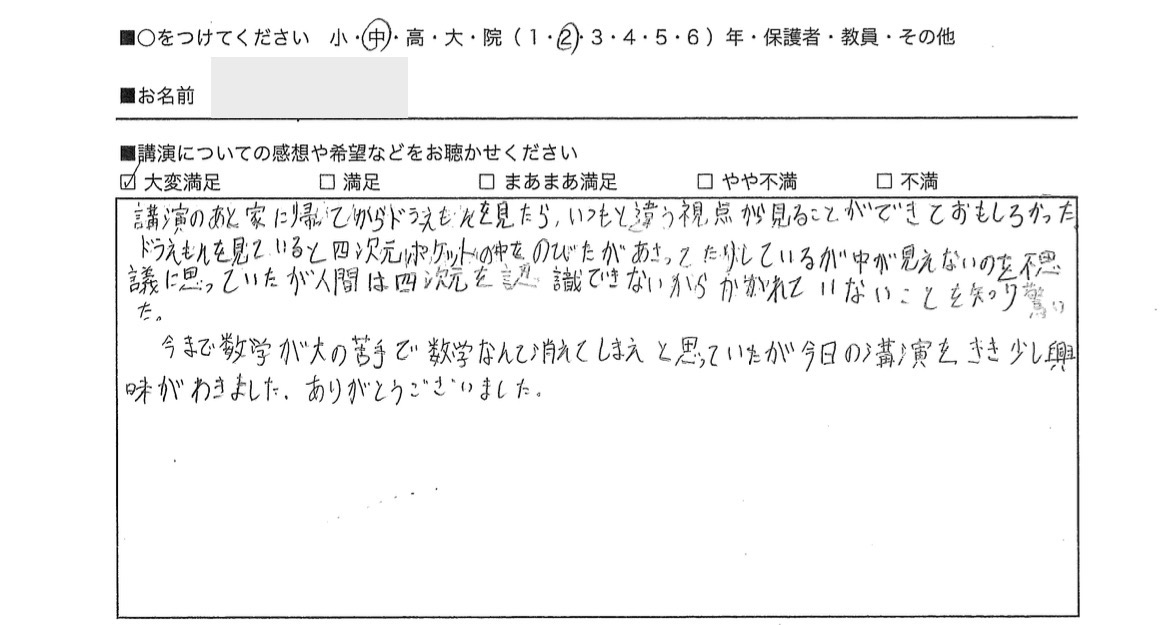 ■○をつけてください 小・中・高・大・院（1・2・3・4・5・6）年・保護者・教員・その他
■お名前
■講演についての感想や希望などをお聴かせください
☑ 大変満足 □ 満足 □ まあまあ満足 □ やや不満 □ 不満
講演のあと家に帰ってからドラえもんを見たら、いつもと違う視点から見ることができておもしろかった
ドラえもんを見ていると四次元ポケットの中をのびたがあさってたりしているが中が見えないのを不思
議に思っていたが人間は四次元を認識できないからかかれていないことを知り驚い
た。
今まで数学が大の苦手で数学なんて消えてしまえと思っていたが今日の講演をきき少し興
味がわきました。ありがとうございました。